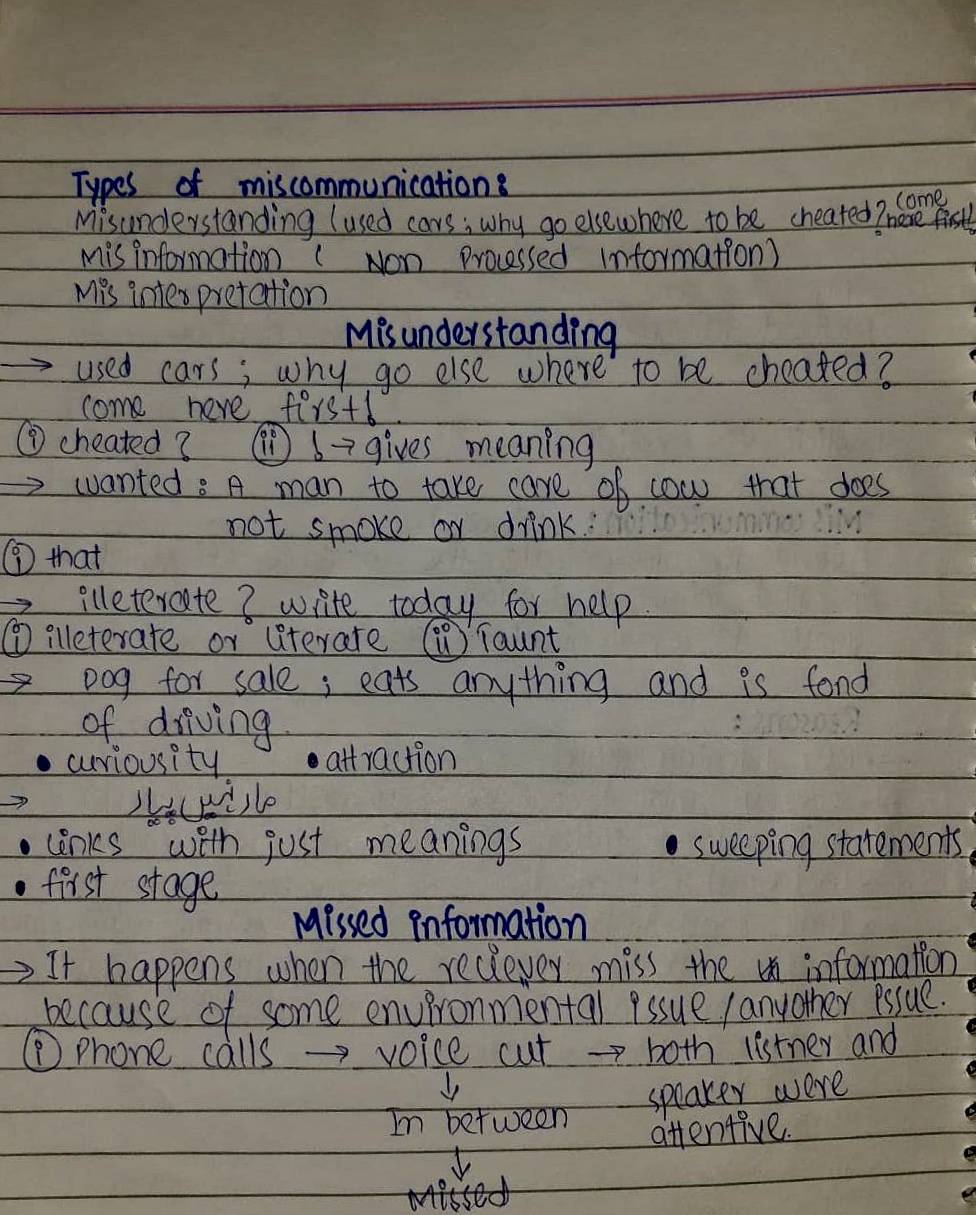 Types of miscommunication:
Misunderstanding (used cars; why go elsewhere to be cheated? come here first!
Mis information ( Non Processed Information)
Mis interpretation
Misunderstanding
→ used cars ; why go else where to be cheated?
come here first!
(i) cheated ? (ii) ! → gives meaning
→ wanted : A man to take care of cow that does
not smoke or drink.
(i) that
→ illeterate ? write today for help.
(i) illeterate or literate (ii) Taunt
→ Dog for sale ; eats anything and is fond
of driving.
• curiousity • attraction
→
• Links with just meanings • sweeping statements
• first stage
Missed information
→ It happens when the reciever miss the information
because of some environmental issue / anyother issue.
(i) Phone calls → voice cut → both listner and
↓ speaker were
In between attentive.
↓
Missed